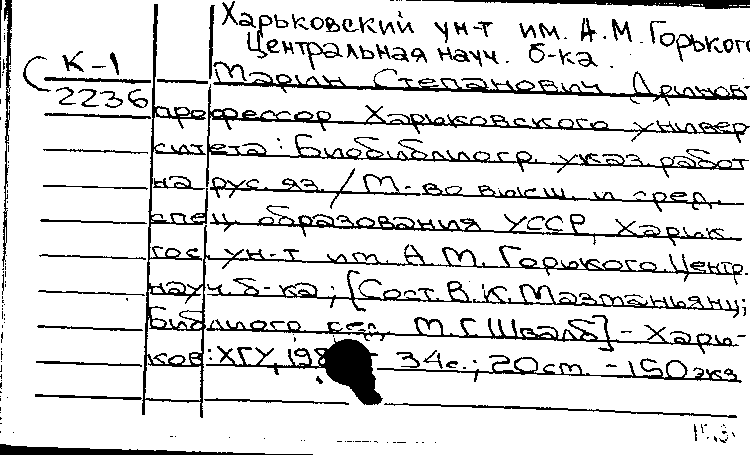 Харьковский ун-т им. А.М. Горького
Центральная науч. б-ка.
К-1
2236
Марин Степанович Дринов
профессор Харьковского универ
ситета: Биобиблиогр. указ. работ
на рус. яз / М-во высш. и сред.
спец образования УССР, Харьк
гос. ун-т им. А М. Горького. Центр.
науч. б-ка; [Сост. В. К. Мазманьянц;
Библиогр ред. М. Г. Швалб] - Харь-
ков: ХГУ, 198 - 34с.; 20см. - 150 экз